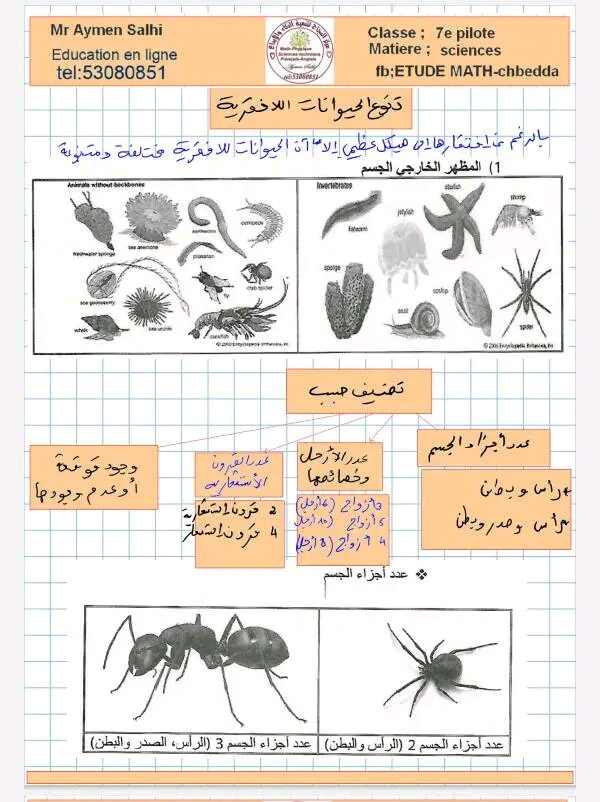 Mr Aymen Salhi
Education en ligne
tel:53080851
Math-Physique
Sciences-technique
Français-Anglais
Aymen Salhi
tel:53080851
Classe ; 7e pilote
Matiere ; sciences
fb;ETUDE MATH-chbedda
تنوع الحيوانات اللافقرية
بالرغم من افتقارها إلى هيكل عظمي إلا أن الحيوانات اللافقرية مختلفة ومتنوعة
1) المظهر الخارجي الجسم
Animals without backbones
freshwater sponge
sea anemone
earthworm
centipede
planarian
sea gooseberry
sea urchin
fly
crab spider
whelk
crawfish
© 2006 Encyclopædia Britannica, Inc.
Invertebrates
flatworm
jellyfish
starfish
shrimp
sponge
snail
scallop
spider
© 2006 Encyclopædia Britannica, Inc.
تصنيف حسب
عدد أجزاء الجسم
رأس وبطن
رأس وصدر وبطن
عدد الأرجل
وخصائصها
3 أزواج (6 أرجل)
5 أزواج (10 أرجل)
4 أزواج (8 أرجل)
عدد القرون
الاستشعارية
2 قرون استشعارية
4 قرون استشعار
وجود قوقعة
أو عدم وجودها
❖ عدد أجزاء الجسم
عدد أجزاء الجسم 2 (الرأس والبطن)
عدد أجزاء الجسم 3 (الرأس، الصدر والبطن)